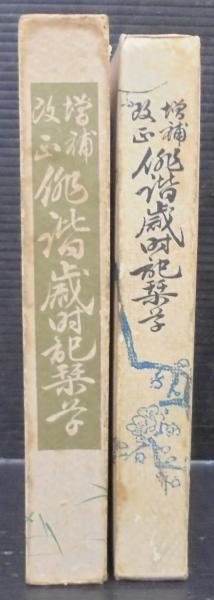 増補
改正
俳諧歳时記栞草
増補
改正
俳諧歳时記栞草